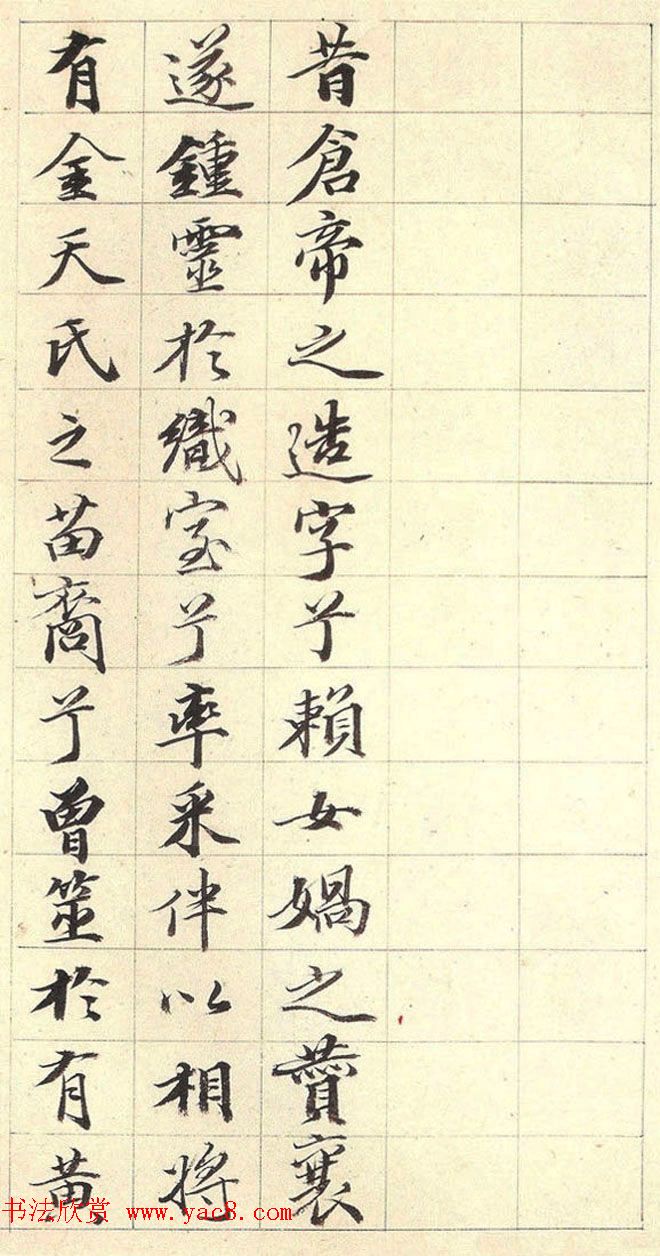 昔倉帝之造字兮賴女媧之賛襄
遂鍾靈於織室兮率采伴以相將
有金天氏之苗裔兮曾筮於有黄
书法欣赏 www.yac8.com